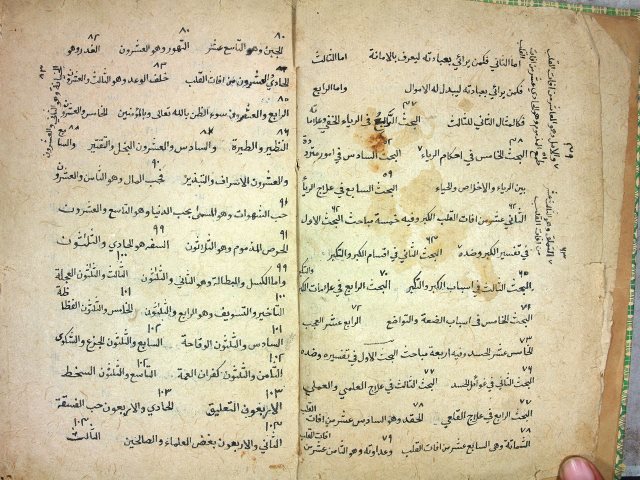 اما الثاني فكمن يرائي بعبادته ليعرف بالامانة اما الثالث
فكمن يرائي بعبادته ليبذل له الاموال واما الرابع
٣٧
فكالمثال الثاني للثالث البحث الرابع في الرياء الخفي وعلاماته
٣٨
البحث الخامس في احكام الرياء البحث السادس في امور مترددة
٥٩
بين الرياء والاخلاص والحياء البحث السابع في علاج الرياء
٦٢
الثاني عشر من افات القلب الكبر وفيه خمسة مباحث البحث الاول
٦٣
في تفسير الكبر وضده البحث الثاني في اقسام الكبر والتكبر
٦٥ ٧٠
البحث الثالث في اسباب الكبر والتكبر البحث الرابع في علامات الكبر
٧٢
البحث الخامس في اسباب الضعة والتواضع الرابع عشر العجب
٧٣
الخامس عشر الحسد وفيه اربعة مباحث البحث الاول في تفسيره وضده
٧٦ ٧٧
البحث الثاني في غوائل الحسد البحث الثالث في علاج العلمي والعملي
٧٧ ٧٨
البحث الرابع في علاج القلعي الحقد وهو السادس عشر من افات القلب
٧٨ ٧٩
الشماتة وهو السابع عشر من افات القلب وعداوته وهو الثامن عشر من افات القلب
٨٠ ٨٠ ٨٢
الجبن وهو التاسع عشر التهور وهو العشرون الغدر وهو
٨٣
الحادي والعشرون من افات القلب خلف الوعد وهو الثالث والعشرون
٨٥
الرابع والعشرون سوء الظن بالله تعالى وبالمؤمنين الخامس والعشرون
٨٦ ٨٧ ٨٨
التطير والطيرة والسادس والعشرون البخل والتقتير والسابع
٩٠
والعشرون الاسراف والتبذير حب المال وهو الثامن والعشرون
٩٦
حب الشهوات وهو المسمى بحب الدنيا وهو التاسع والعشرون
٩١ ٩٩
الحرص المذموم وهو الثلاثون السفه وهو الحادي والثلثون
٩٩ ١٠٠
واما الكسل والبطالة وهو الثاني والثلثون الثالث والثلثون العجلة
١٠٠ ١٠١
التاخير والتسويف وهو الرابع والثلثون الخامس والثلثون الفظاظة
١٠١ ١٠٢
السادس والثلثون الوقاحة السابع والثلثون الجزع والشكوى
١٠٢ ١٠٣
الثامن والثلثون كفران النعمة التاسع والثلثون السخط
١٠٣ ١٠٣
الاربعون التعليق الحادي والاربعون حب الفسقة
١٠٣ ١٠٣
الثاني والاربعون بغض العلماء والصالحين الثالث